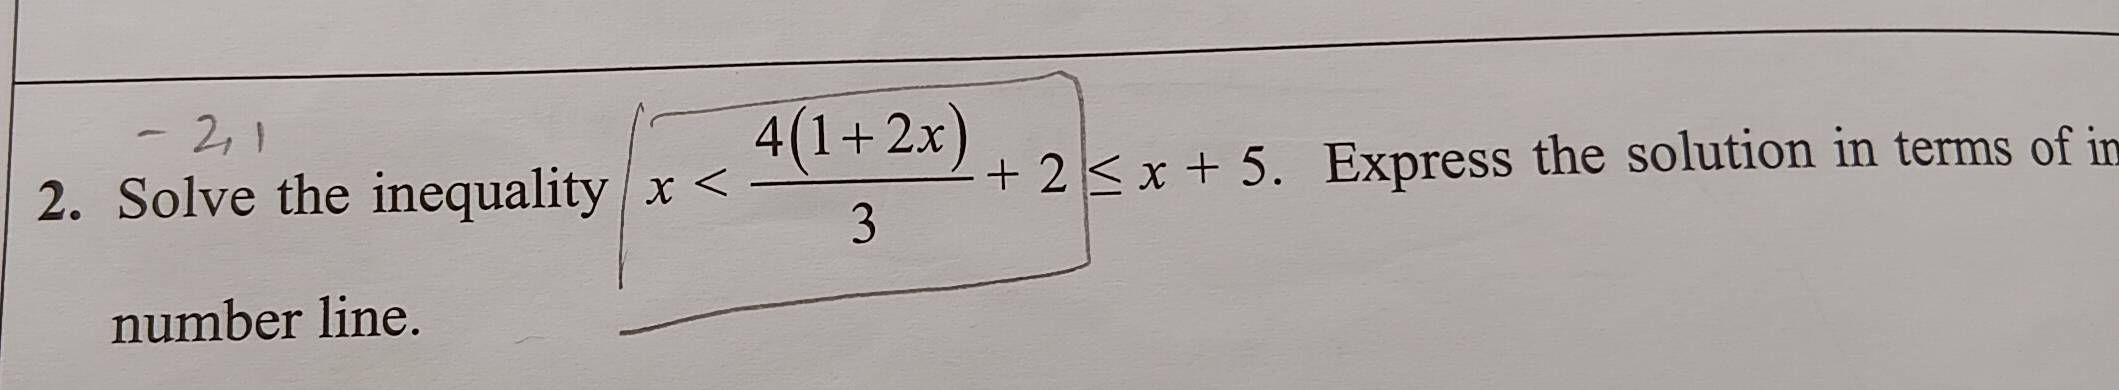 - 2, 1
2. Solve the inequality x < \frac{4(1+2x)}{3} + 2 ≤ x + 5. Express the solution in terms of in
number line.